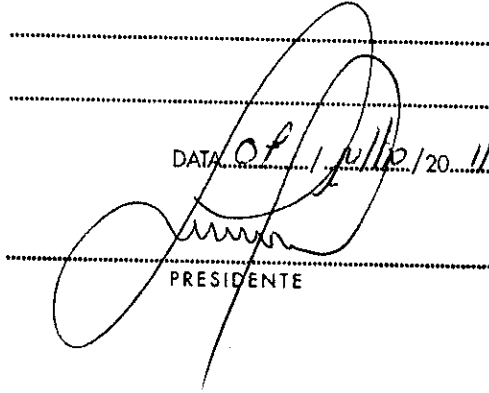 DATA 07 / julho / 20 11
PRESIDENTE